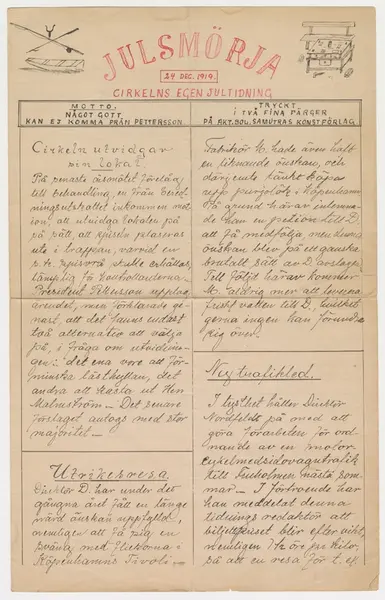 JULSMÖRJA
24 DEC. 1919.
CIRKELNS EGEN JULTIDNING
MOTTO.
NÅGOT GOTT
KAN EJ KOMMA FRÅN PETTERSSON.
TRYCKT
I TVÅ FINA FÄRGER
PÅ AKT. BOL. SAMÖTRAS KONSTFÖRLAG.
Cirkeln utvidgar
sin lokal.
På senaste årsmötet förelåg
till behandling en från
inkommen mot-
ion, att utvidga lokalen på
så sätt, att spiseln placeras
ute i trappan, varvid en
p. t. spisvrå skulle erhållas,
lämplig för
President Pettersson uppläg
arendet, men förklarade ge-
nast, att det fanns endast
två alternativ att välja
på, i fråga om utvidenin-
gen: det ena vore att för-
minska lästhyllan, det
andra att kasta ut Herr
Malmström. – Det senare
förslaget antogs med stor
majoritet. –
Utrikesresa.
Direktör D. har under det
gångna året fått en länge
närd önskan uppfylld,
nemligen att få sig en
svång med flickorna i
Köpenhamns Tivoli. –
Fabrikör M. hade även haft
en liknande önskan, och
därjemte tänkt köpas
upp purjolök i Köpenhamn.
På grund härav inlemna-
de han en petion till D.
att få medfölja, men denna
önskan blev på ett ganska
brutalt sätt av D. avslagen.
Till följd härav kommer
M. aldrig mer att leverera
friskt vatten till D., hvilket
gerna ingen kan förundra
sig över.
Ny trafikled.
I tysthet håller Direktör
Nordfeldt på med att
göra förarbeten för ord-
nande av en motor-
cykelmedsidovagntrafik
till Enholmen nästa som-
mar. – I förtroende har
han meddelat denna
tidnings redaktör att
biljettpriset blir efter vikt,
nemligen 1/2 öre pr kilo,
så att en resa för t. ex.